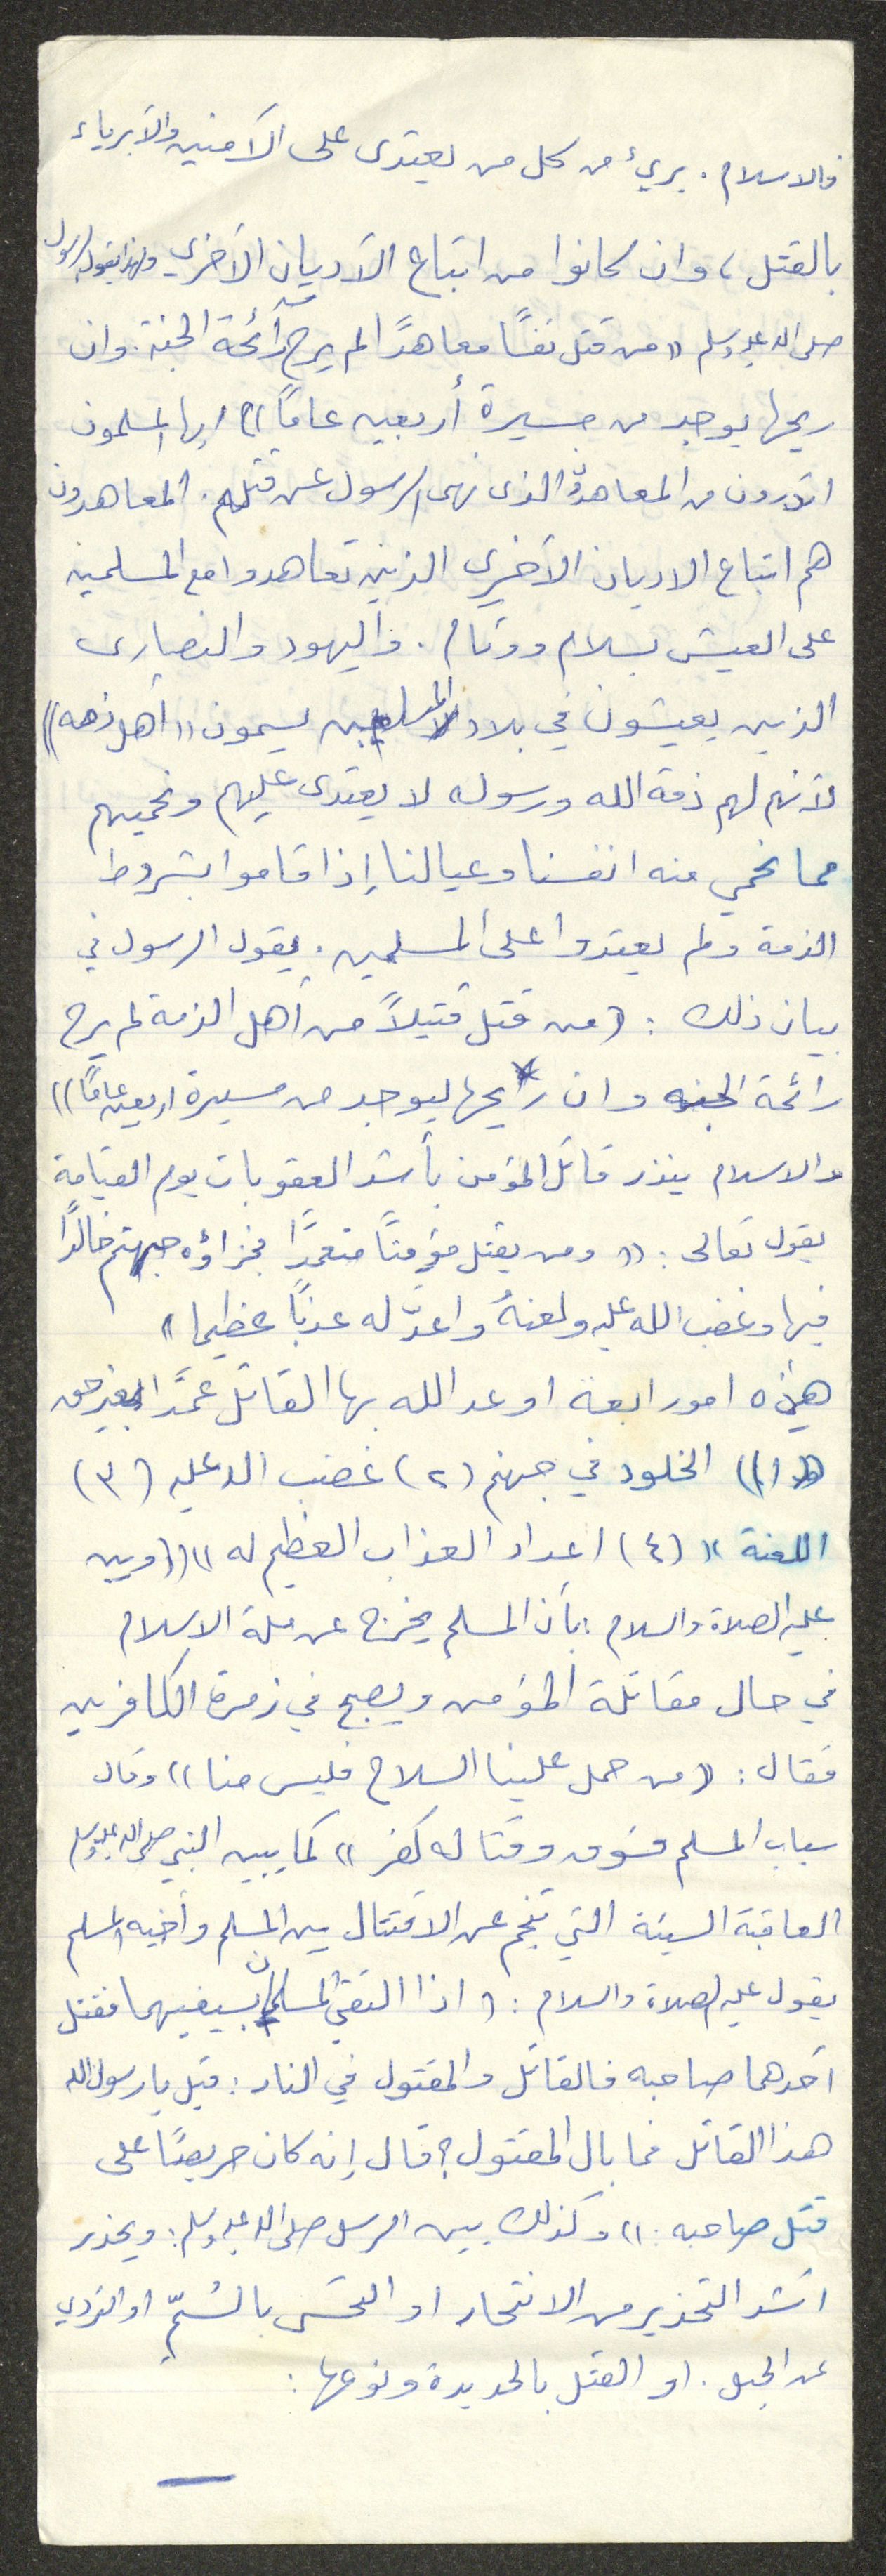 فالاسلام. بريء من كل من يعتدى على الآمنين والأبرياء
بالقتل، وان كانوا من اتباع الأديان الأخرى ولهذا يقول الرسول
صلى الله عليه وسلم «من قتل نفسًا معاهدًا لم يرح رائحة الجنة. وان
ريحها يوجد من مسيرة أربعين عامًا» ايها المسلمون
اتدرون من المعاهدون الذى نهى الرسول عن قتلهم. المعاهدون
هم اتباع الاديان الأخرى الذين تعاهدوا مع المسلمين
على العيش بسلام ووئام. فاليهود والنصارى
الذين يعيشون في بلاد المسلمين يسمون «أهل ذمه»
لأنهم لهم ذمة الله ورسوله لا يعتدى عليهم ونحميهم
مما نحمي منه انفسنا وعيالنا إذا قاموا بشروط
الذمة ولم يعتدوا على المسلمين. يقول الرسول في
بيان ذلك: (من قتل قتيلاً من أهل الذمة لم يرح
رائحة الجنه وان ريحها ليوجد من مسيرة اربعين عامًا))
والاسلام ينذر قاتل المؤمن بأشد العقوبات يوم القيامة
يقول تعالى: «ومن يقتل مؤمنًا متعمدًا فجزاؤه جهنم خالدًا
فيها وغضب الله عليه ولعنهُ واعدّ له عذبًا عظيما»
هذه امور اربعة اوعد الله بها القاتل عمدًا بغير حق
(١) الخلود في جهنم (٢) غضب الله عليه (٣)
اللعنة» (٤) اعداد العذاب العظيم له» ((وبين
عليه الصلاة والسلام: بأن المسلم يخرج عن ملة الاسلام
في حال مقاتلة المؤمن ويصبح في زمرة الكافرين
فقال: «من حمل علينا السلاح فليس منا» وقال
سباب المسلم فسوق وقتاله كفر» كما يبين النبي صلى الله عليه وسلم
العاقبة السيئة التي تنجم عن الاقتتال بين المسلم وأخيه المسلم
يقول عليه الصلاة والسلام: (اذا التقى المسلمان بسيفيهما فقتل
احدهما صاحبه فالقاتل والمقتول في النار: قيل يا رسول الله
هذا القاتل فما بال المقتول؟ قال إنه كان حريصًا على
قتل صاحبه:» وكذلك بين الرسل صلى الله عليه وسلم: ويحذر
اشد التحذير من الانتحار او التحسى بالسُمّ او التردي
عن الجبل. او القتل بالحديدة ونوعها: